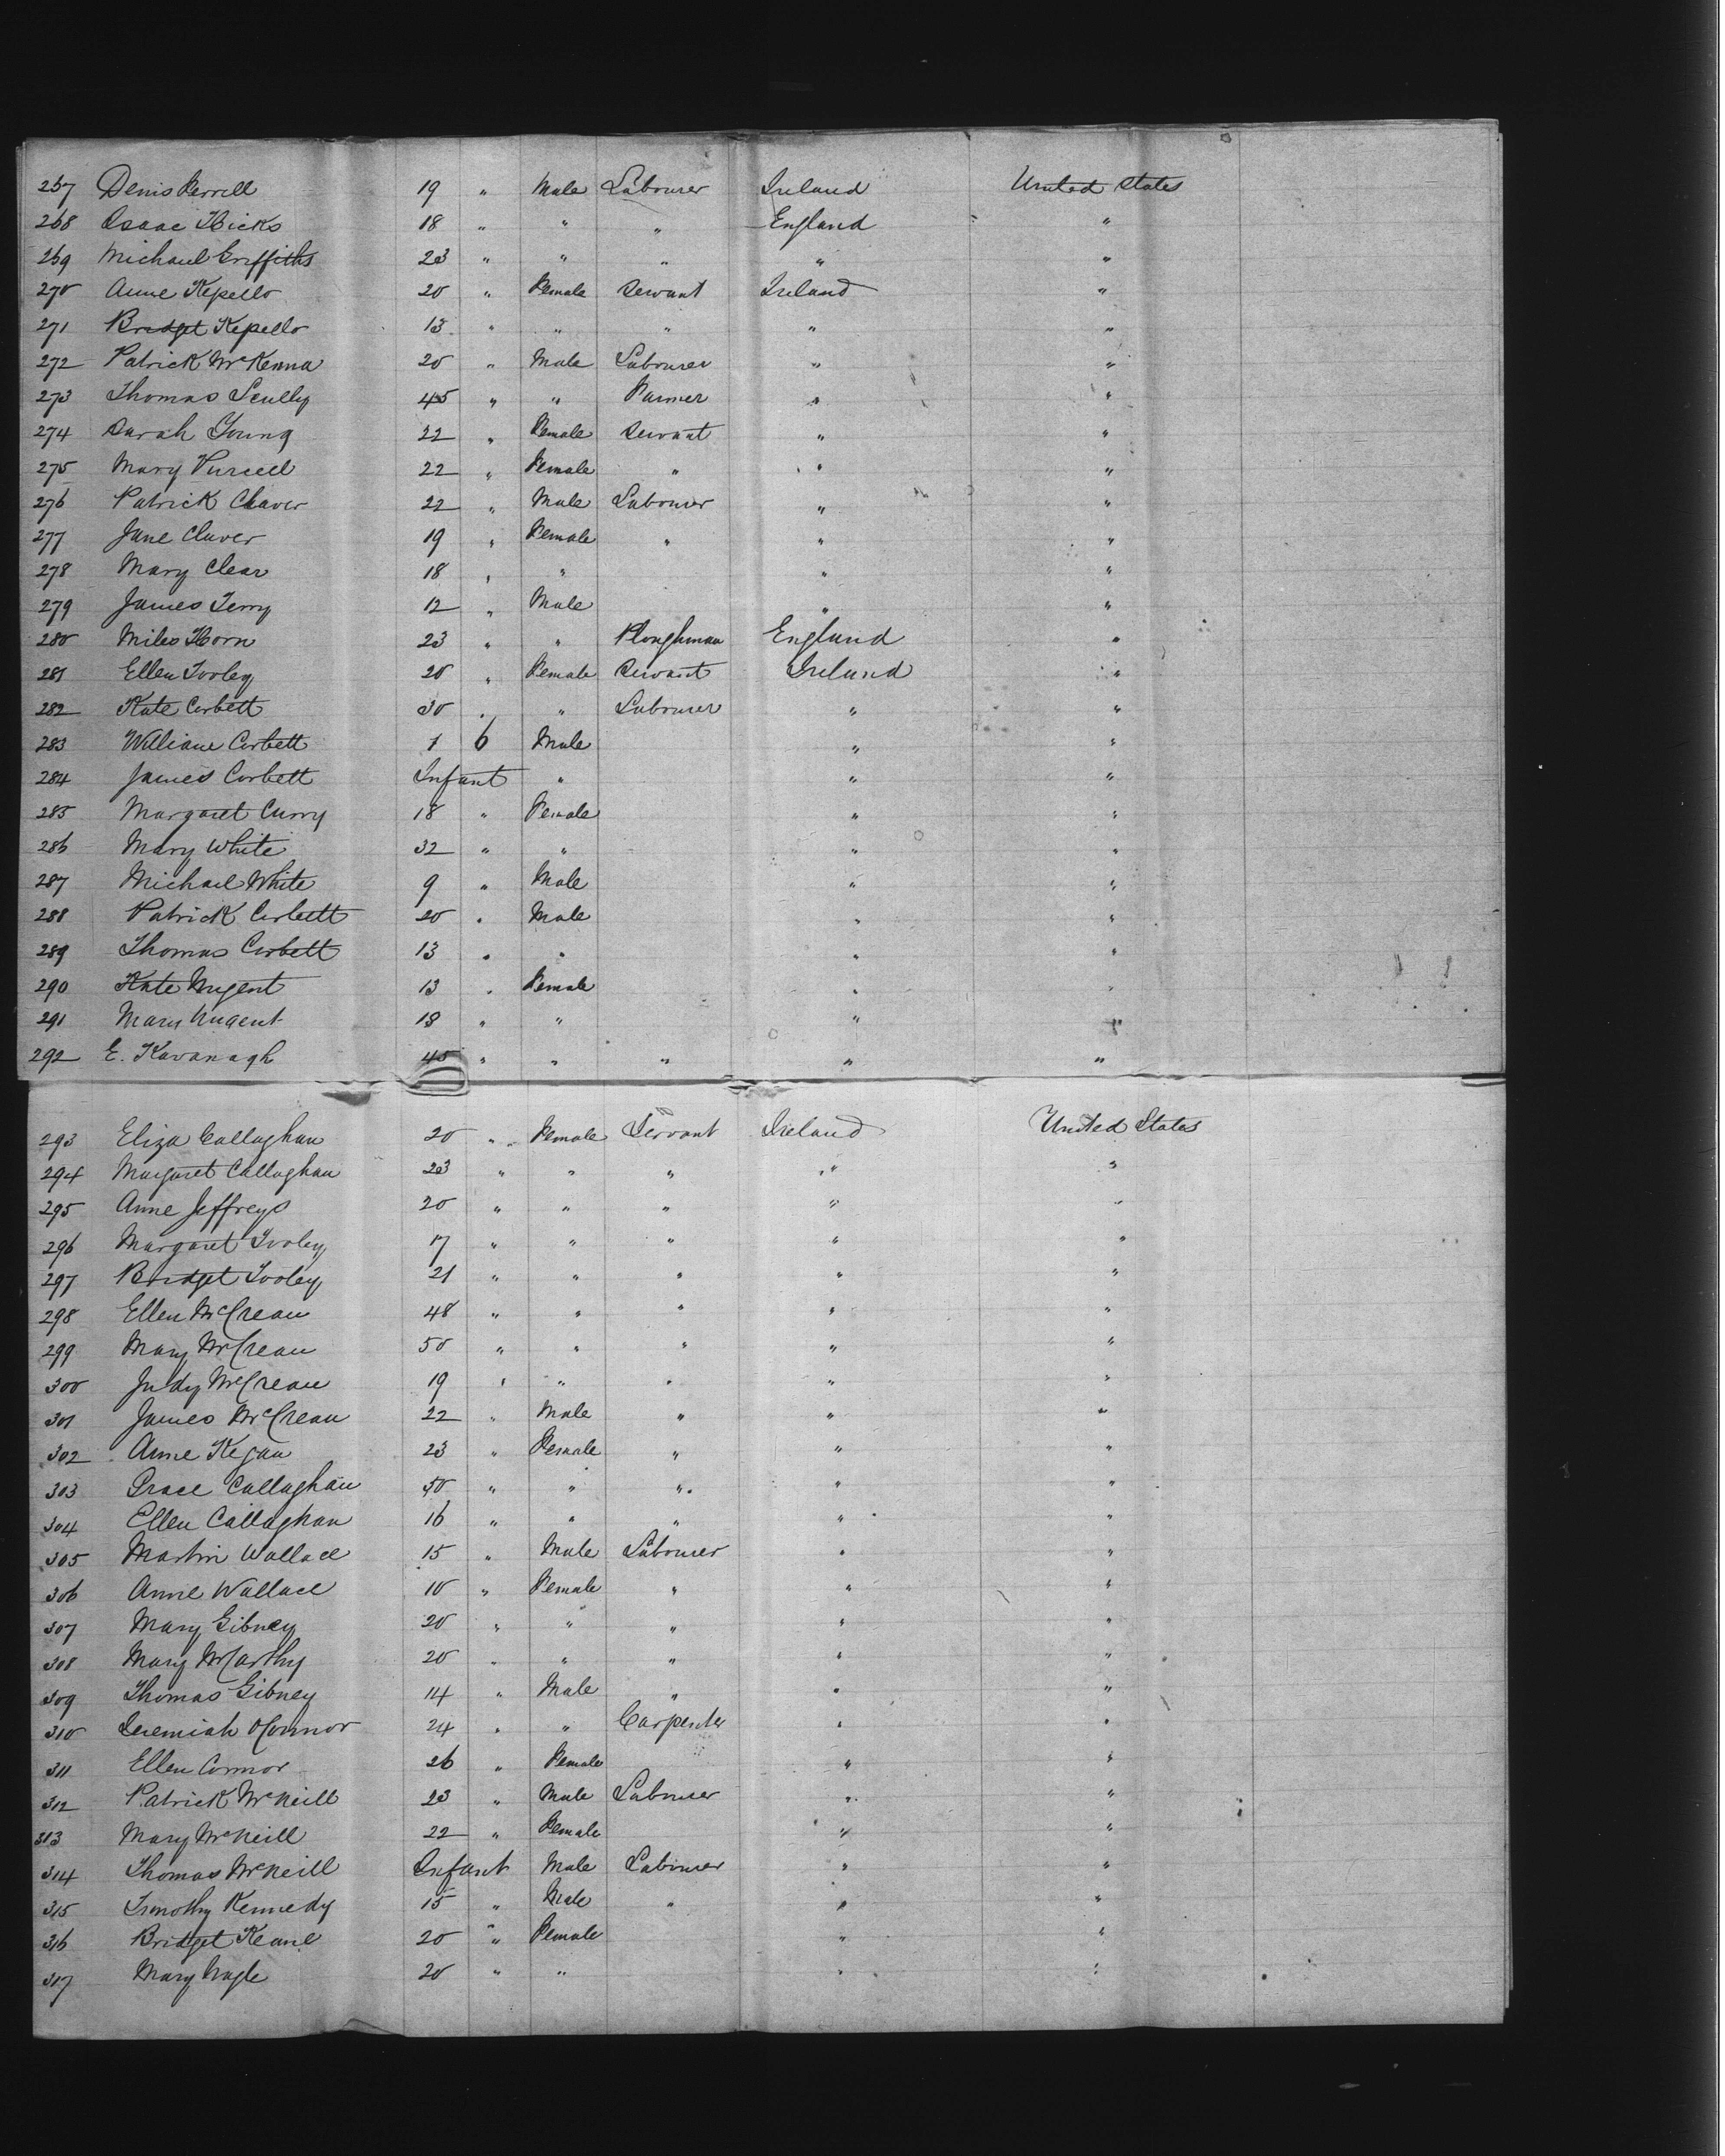 267 Denis Ferrell 19 " Male Labourer Ireland United States
268 Isaac Hicks 18 " " " England "
269 Michael Griffiths 23 " " " " "
270 Anne Kepello 20 " Female Servant Ireland "
271 Bridget Kepello 13 " " " " "
272 Patrick McKenna 20 " Male Labourer " "
273 Thomas Scully 45 " " Farmer " "
274 Sarah Young 22 " Female Servant " "
275 Mary Purcell 22 " Female " " "
276 Patrick Claver 22 " Male Labourer " "
277 Jane Claver 19 " Female " " "
278 Mary Clear 18 " " " "
279 James Terry 12 " Male " "
280 Miles Horn 23 " " Ploughman England "
281 Ellen Tooley 20 " Female Servant Ireland "
282 Kate Corbett 30 " " Labourer " "
283 William Corbett 1 6 Male " "
284 James Corbett Infant " " "
285 Margaret Curry 18 " Female " "
286 Mary White 32 " " " "
287 Michael White 9 " Male " "
288 Patrick Corbett 20 " Male " "
289 Thomas Corbett 13 " " " "
290 Kate Nugent 13 " Female " "
291 Mary Nugent 18 " " " "
292 E. Kavanagh 45 " " " " "
293 Eliza Callaghan 20 " Female Servant Ireland United States
294 Margaret Callaghan 23 " " " " "
295 Anne Jeffreys 20 " " " " "
296 Margaret Tooley 17 " " " " "
297 Bridget Tooley 21 " " " " "
298 Ellen McCrean 48 " " " " "
299 Mary McCrean 50 " " " " "
300 Judy McCrean 19 " " " " "
301 James McCrean 22 " Male " " "
302 Anne Kegan 23 " Female " " "
303 Grace Callaghan 50 " " " " "
304 Ellen Callaghan 16 " " " " "
305 Martin Wallace 15 " Male Labourer " "
306 Anne Wallace 10 " Female " " "
307 Mary Gibney 20 " " " " "
308 Mary McCarthy 20 " " " " "
309 Thomas Gibney 14 " Male " " "
310 Jeremiah OConnor 24 " " Carpenter " "
311 Ellen Connor 26 " Female " "
312 Patrick McNeill 23 " Male Labourer " "
313 Mary McNeill 22 " Female " "
314 Thomas McNeill Infant Male Labourer " "
315 Timothy Kennedy 15 " Male " " "
316 Bridget Keane 20 " Female " "
317 Mary Nagle 20 " " " "